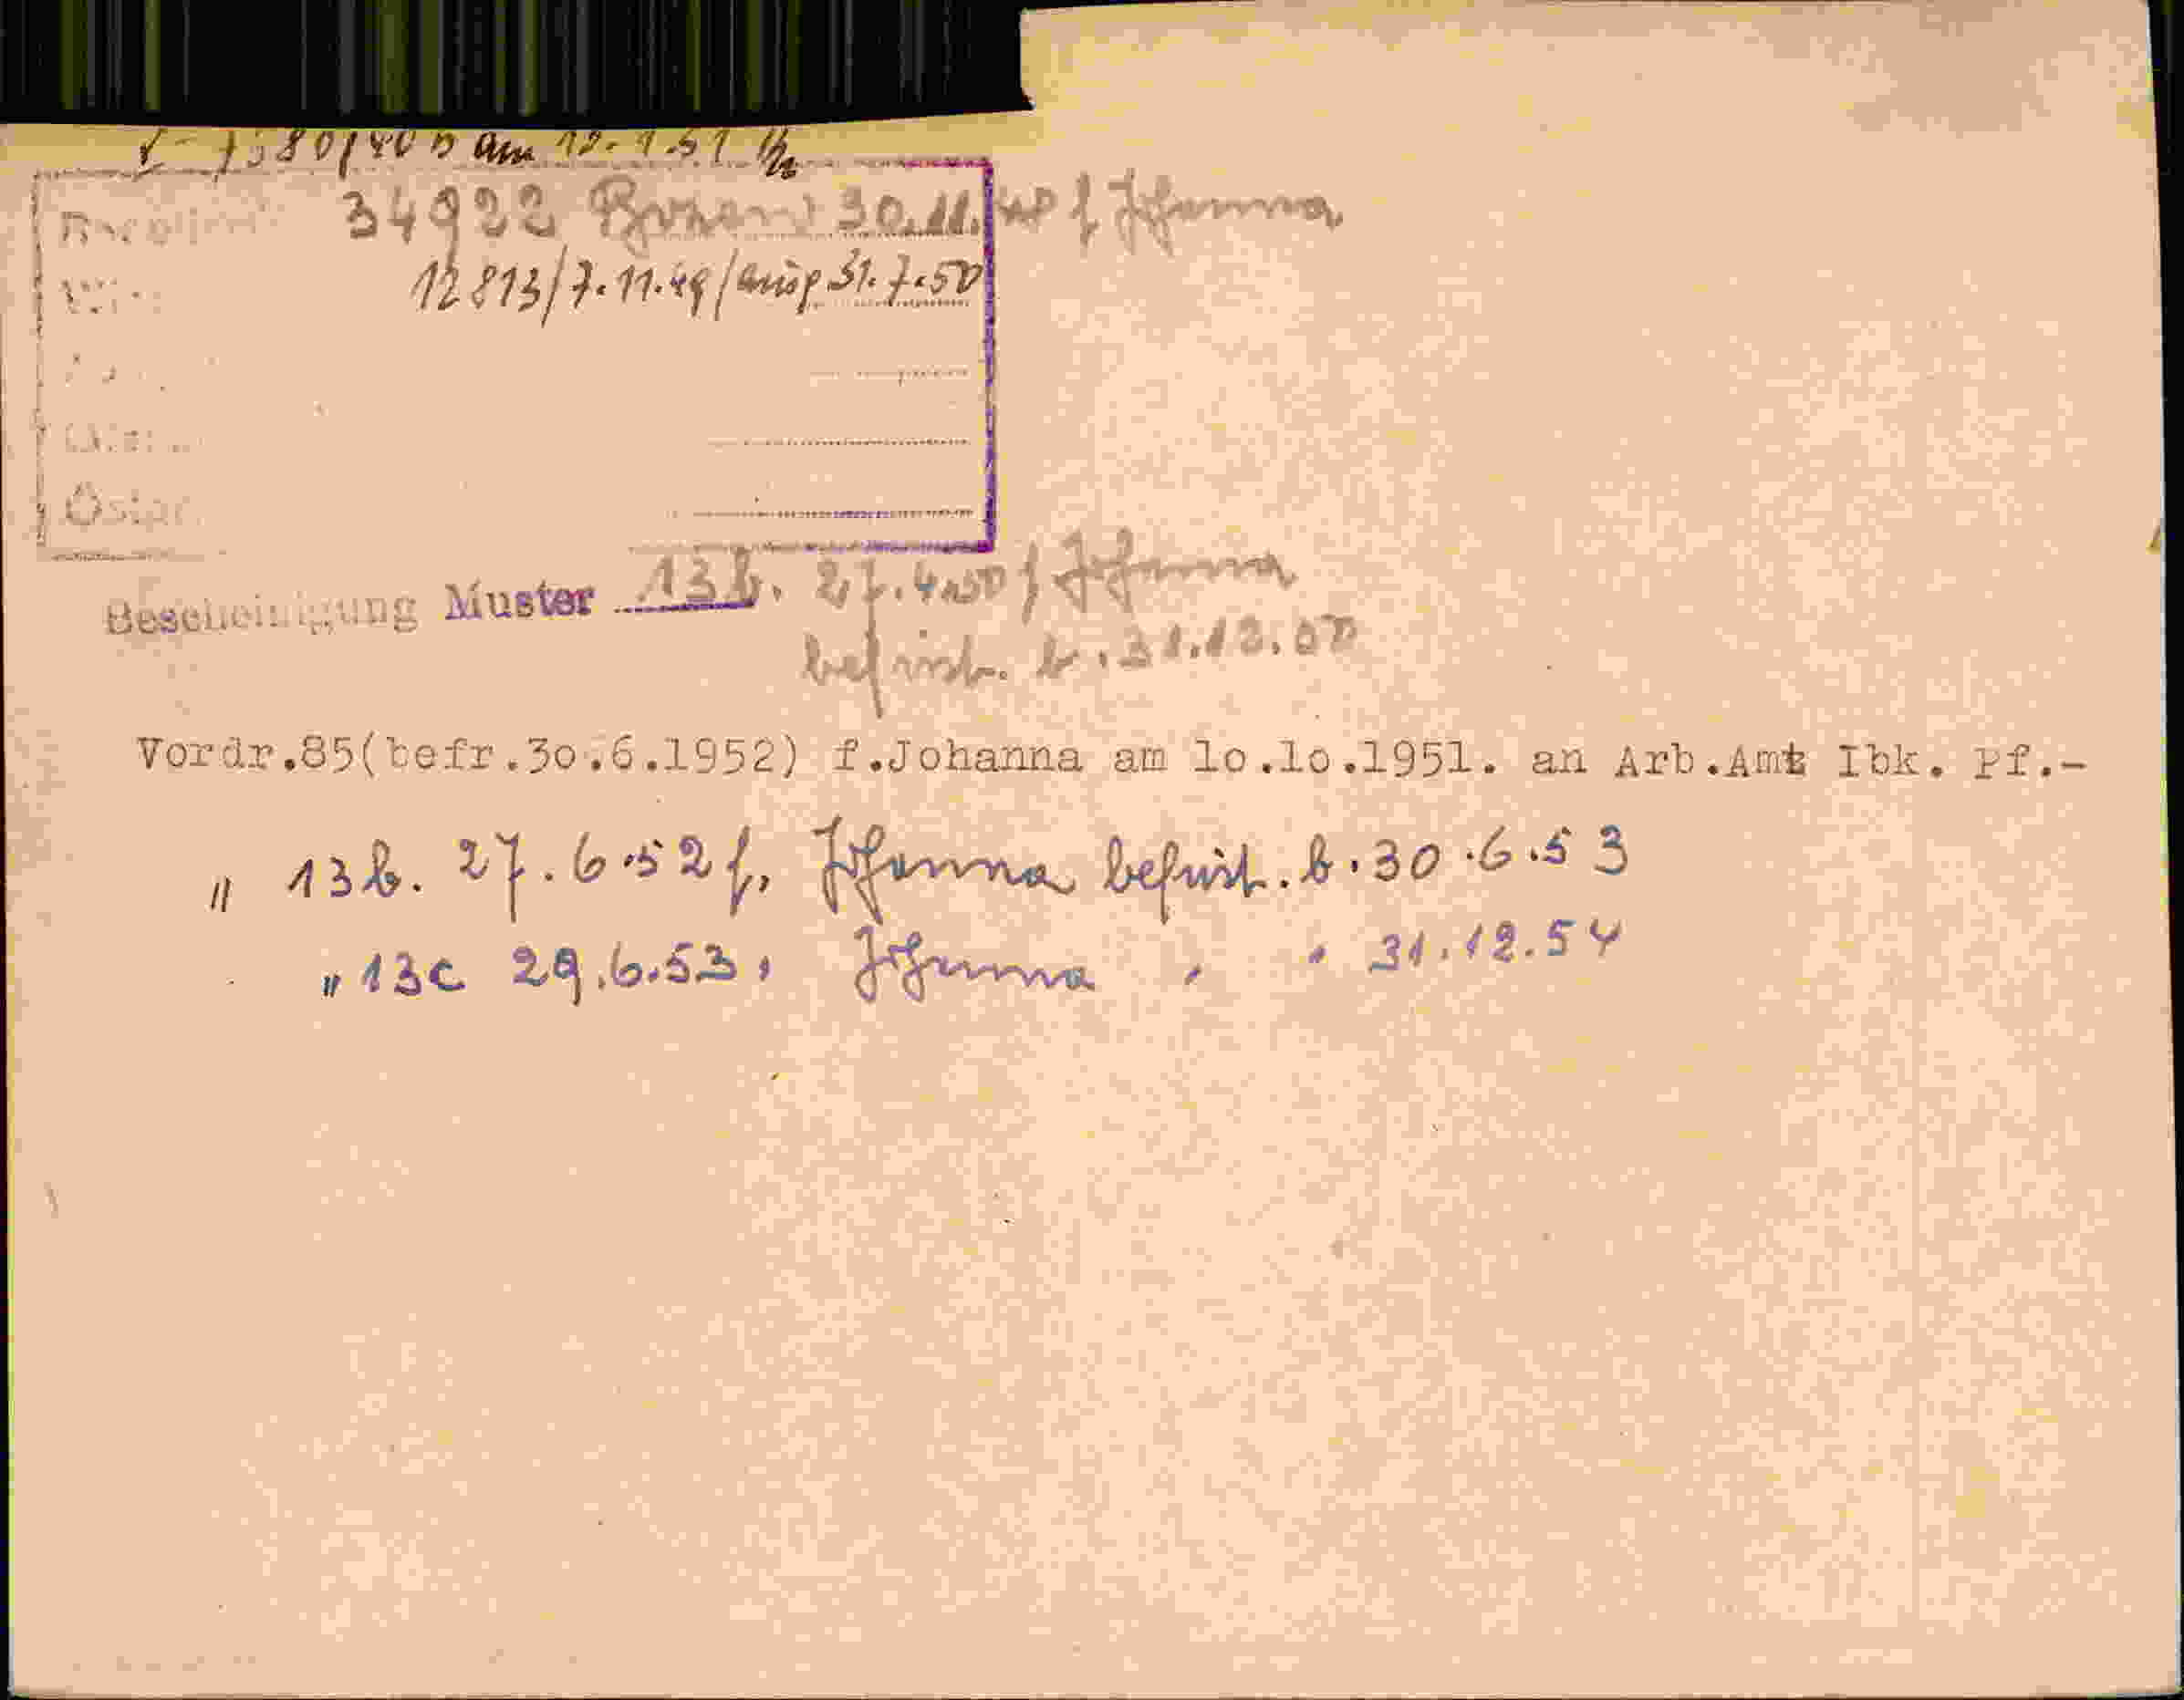 80/40 am 12.1.51
34922 Bozen 30.11. f Johanna
12813/7.11.49/ausg. 31.7.50
Österr.
Bescheinigung Muster 13b. 27.4.50 f Johanna
befrist. b. 31.12.50
Vordr.85(befr.3o.6.1952) f.Johanna am 1o.1o.1951. an Arb.Amt Ibk. Pf.-
" 13b. 27.6.52 f. Johanna befrist. b. 30.6.53
" 13c 29.6.53 " Johanna " " 31.12.54